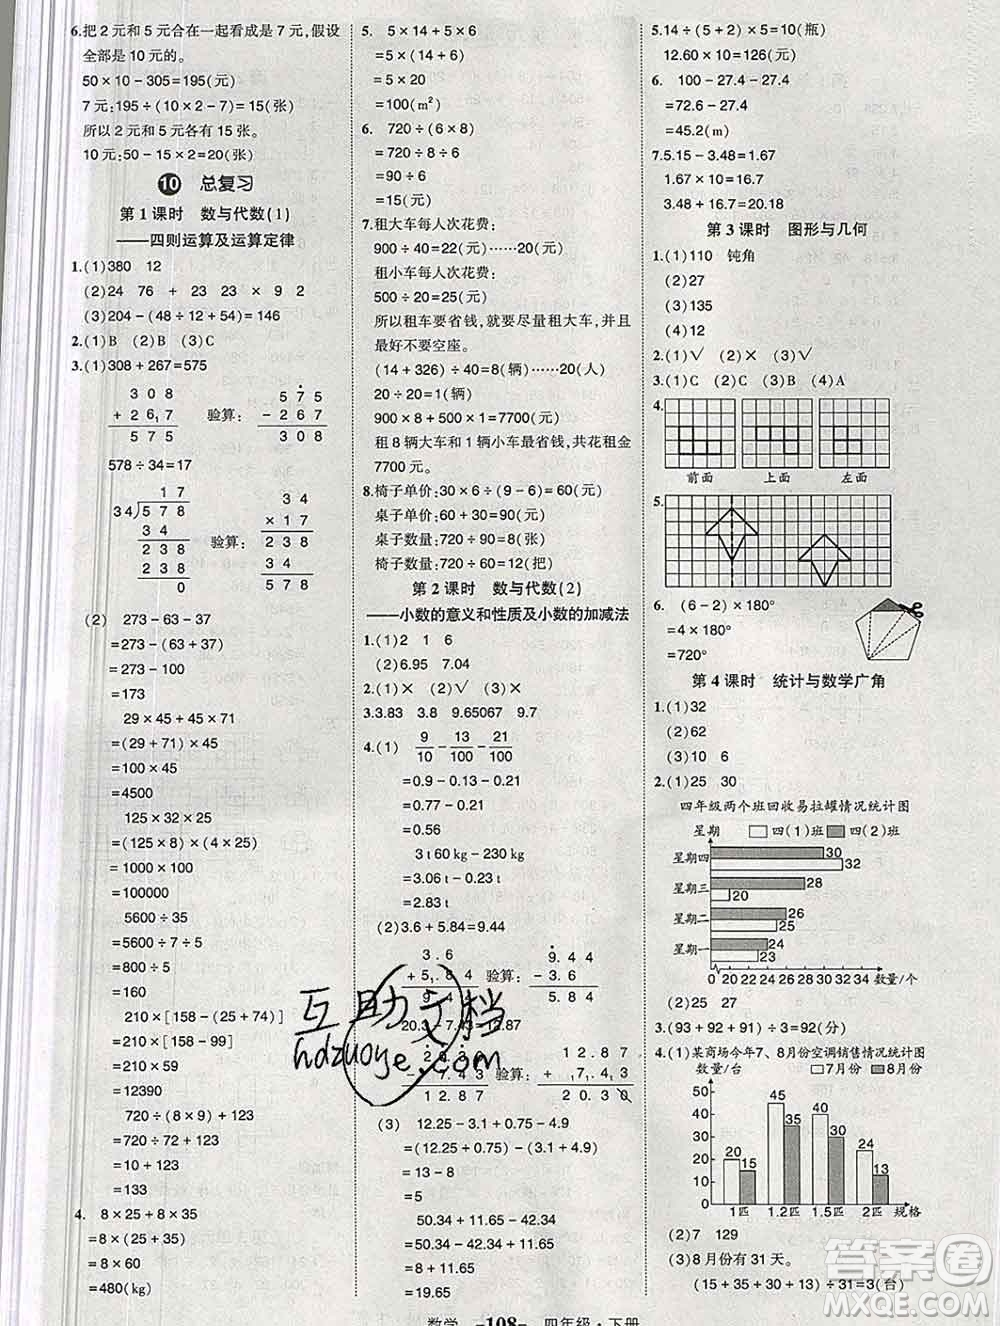 6.把 2 元和 5 元合在一起看成是 7 元,假设
全部是 10 元的。
50 × 10 − 305 = 195(元)
7 元:195 ÷ (10 × 2 − 7) = 15(张)
所以 2 元和 5 元各有 15 张。
10 元:50 − 15 × 2 = 20(张)
10 总复习
第 1 课时 数与代数(1)
——四则运算及运算定律
1.(1)380 12
(2)24 76 + 23 23 × 9 2
(3)204 − (48 ÷ 12 + 54) = 146
2.(1)B (2)B (3)C
3.(1)308 + 267 = 575
3 0 8
+ 2 6 7
5 7 5
验算:
5 7 5
− 2 6 7
3 0 8
578 ÷ 34 = 17
1 7
34 5 7 8
3 4
2 3 8
2 3 8
0
验算:
3 4
× 1 7
2 3 8
3 4
5 7 8
(2) 273 − 63 − 37
= 273 − (63 + 37)
= 273 − 100
= 173
29 × 45 + 45 × 71
= (29 + 71) × 45
= 100 × 45
= 4500
125 × 32 × 25
= (125 × 8) × (4 × 25)
= 1000 × 100
= 100000
5600 ÷ 35
= 5600 ÷ 7 ÷ 5
= 800 ÷ 5
= 160
210 × [158 − (25 + 74)]
= 210 × [158 − 99]
= 210 × 59
= 12390
720 ÷ (8 × 9) + 123
= 720 ÷ 72 + 123
= 10 + 123
= 133
4. 8 × 25 + 8 × 35
= 8 × (25 + 35)
= 8 × 60
= 480(kg)
5. 5 × 14 + 5 × 6
= 5 × (14 + 6)
= 5 × 20
= 100(m²)
6. 720 ÷ (6 × 8)
= 720 ÷ 8 ÷ 6
= 90 ÷ 6
= 15(元)
7.租大车每人次花费:
900 ÷ 40 = 22(元)……20(元)
租小车每人次花费:
500 ÷ 20 = 25(元)
所以租车要省钱,就要尽量租大车,并且
最好不要空座。
(14 + 326) ÷ 40 = 8(辆)……20(人)
20 ÷ 20 = 1(辆)
900 × 8 + 500 × 1 = 7700(元)
租 8 辆大车和 1 辆小车最省钱,共花租金
7700 元。
8.椅子单价:30 × 6 ÷ (9 − 6) = 60(元)
桌子单价:60 + 30 = 90(元)
桌子数量:720 ÷ 90 = 8(张)
椅子数量:720 ÷ 60 = 12(把)
第 2 课时 数与代数(2)
——小数的意义和性质及小数的加减法
1.(1)2 1 6
(2)6.95 7.04
2.(1)× (2)√ (3)×
3.3.83 3.8 9.65067 9.7
4.(1) 9/10 − 13/100 − 21/100
= 0.9 − 0.13 − 0.21
= 0.77 − 0.21
= 0.56
3 t 60 kg − 230 kg
= 3.06 t − 0.23 t
= 2.83 t
(2)3.6 + 5.84 = 9.44
3. 6
+ 5. 8 4
9 4 4
验算:
9. 4 4
− 3. 6
5. 8 4
20.3 − 7.43 = 12.87
2 0. 3
− 7. 4 3
1 2. 8 7
验算:
1 2. 8 7
+ 7. 4 3
2 0. 3 0
(3) 12.25 − 3.1 + 0.75 − 4.9
= (12.25 + 0.75) − (3.1 + 4.9)
= 13 − 8
= 5
50.34 + 11.65 − 42.34
= 50.34 − 42.34 + 11.65
= 8 + 11.65
= 19.65
5.14 ÷ (5 + 2) × 5 = 10(瓶)
12.60 × 10 = 126(元)
6. 100 − 27.4 − 27.4
= 72.6 − 27.4
= 45.2(m)
7.5.15 − 3.48 = 1.67
1.67 × 10 = 16.7
3.48 + 16.7 = 20.18
第 3 课时 图形与几何
1.(1)110 钝角
(2)27
(3)135
(4)12
2.(1)√ (2)× (3)√
3.(1)C (2)C (3)B (4)A
4.
前面 上面 左面
5.
6. (6 − 2) × 180°
= 4 × 180°
= 720°
第 4 课时 统计与数学广角
1.(1)32
(2)62
(3)10 6
2.(1)25 30
四年级两个班回收易拉罐情况统计图
星期 四(1)班 四(2)班
星期四 30 32
星期三 28 20
星期二 26 25
星期一 24 23
0 20 22 24 26 28 30 32 34 数量/个
(2)25 27
3.(93 + 92 + 91) ÷ 3 = 92(分)
4.(1)某商场今年7、8月份空调销售情况统计图
数量/台 7月份 8月份
50
40
30
20
10
0
20 15 45 35 40 30 24 13
1匹 1.2匹 1.5匹 2匹 规格
(2)7 129
(3)8 月份有 31 天。
(15 + 35 + 30 + 13) ÷ 31 = 3(台)
数学 -108- 四年级·下册
互助文档
hdzuoye.com
答案圈
MXQE.COM